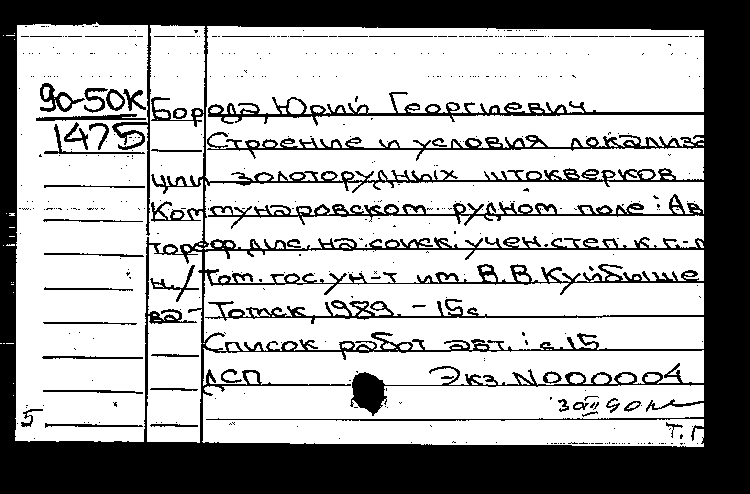 90-50К
1475
Борода, Юрий Георгиевич.
Строение и условия локализа
ции золоторудных штокверков
Коммунаровском рудном поле : Ав
тореф. дис. на соиск. учен. степ. к. г.-м
н. / Том. гос. ун-т им. В.В. Куйбыше
ва. - Томск, 1989. - 15с.
Список работ авт. : с. 15
ДСП. Экз. N000004.
5
Т. П